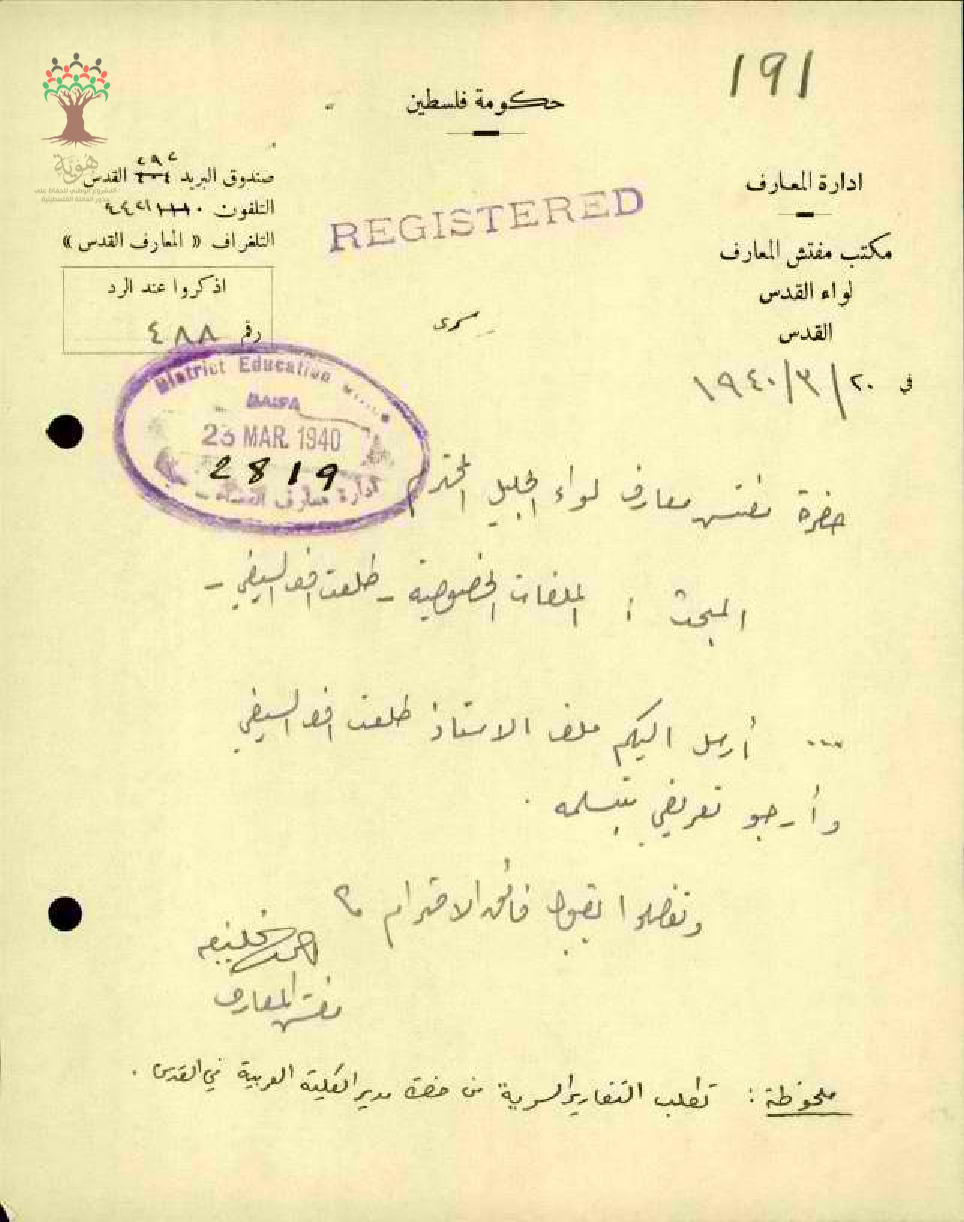 191
حكومة فلسطين
ادارة المعارف
مكتب مفتش المعارف
لواء القدس
القدس
في ٢٠/٣/١٩٤٠
صندوق البريد ٤٠٤ ٤٩٢ القدس
التلفون
التلغراف « المعارف القدس »
اذكروا عند الرد
رقم ٤٨٨
هوية
المشروع الوطني للحفاظ على
جذور العائلة الفلسطينية
REGISTERED
سري
District Education
HAIFA
23 MAR. 1940
2819
ادارة معارف
حضرة مفتش معارف لواء الجليل المحترم
المبحث : الملفات الخصوصية - طلعت افن السيفي -
أرسل اليكم ملف الاستاذ طلعت افن السيفي
وأرجو تعريفي بتسلمه .
وتفضلوا بقبول فائق الاحترام
احمد خليفه
مفتش المعارف
ملحوظة : تطلب التقارير السرية من حضرة مدير الكلية العربية في القدس .